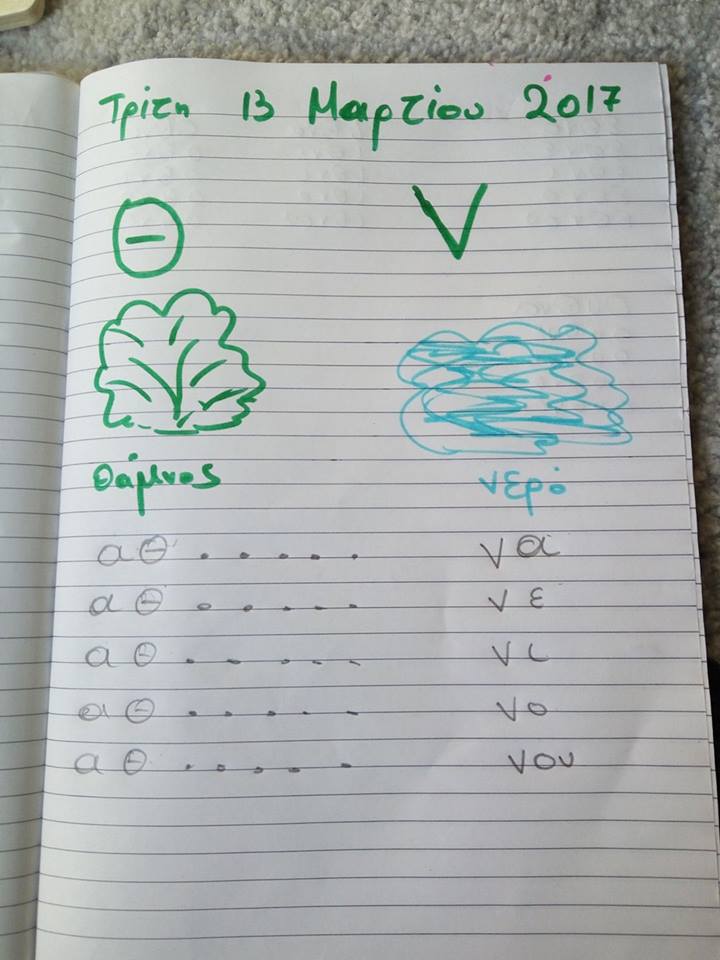 Τρίτη 13 Μαρτίου 2017
Θ ν
θάμνος νερό
α θ . . . . . να
α θ . . . . . νε
α θ . . . . . νι
α θ . . . . . νο
α θ . . . . . νου